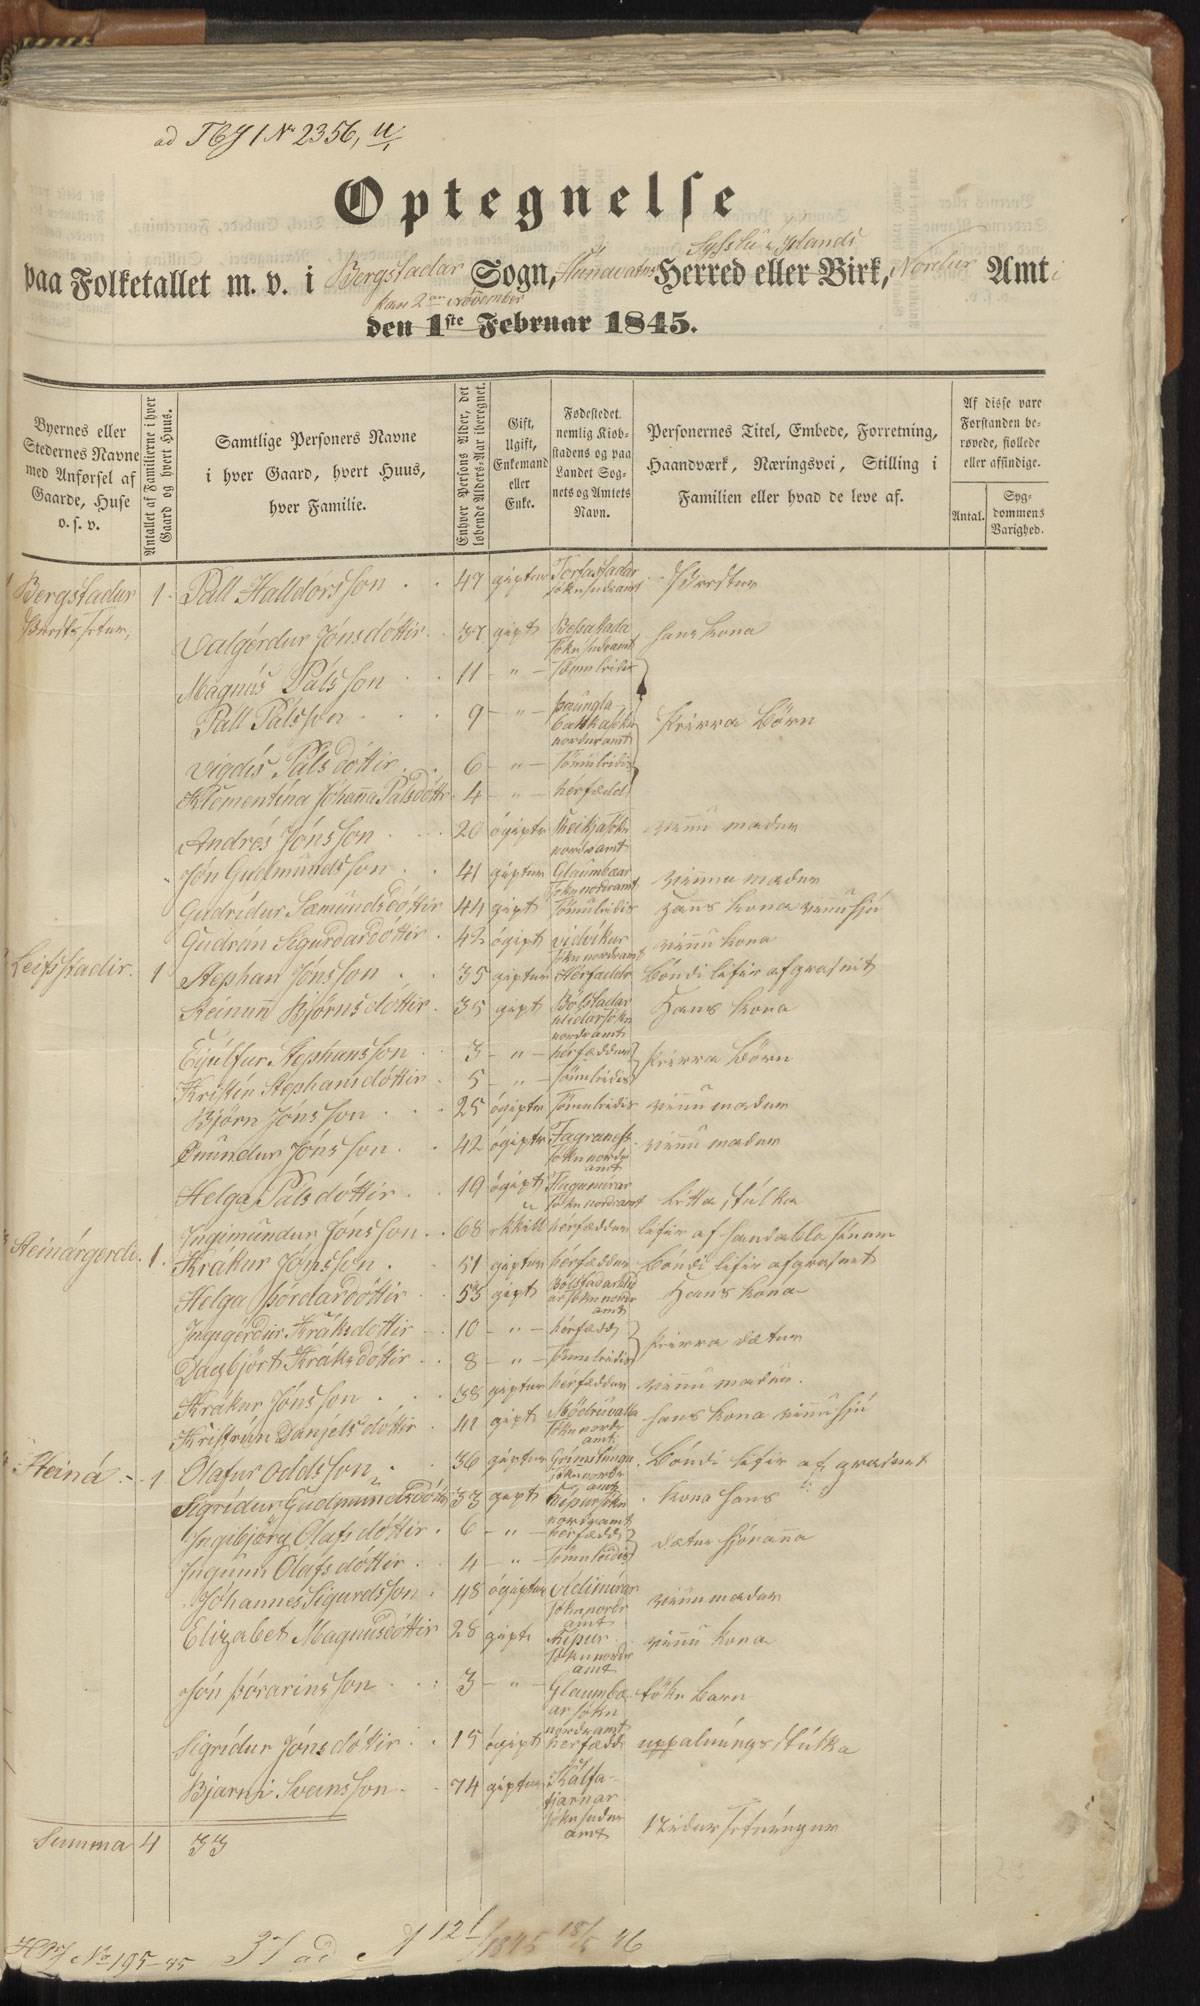 ad T B J 1 No 2356, u.
Optegnelse
Sysslu i Islands
paa Folketallet m. v. i Bergstadar Sogn, Hunavatns Herred eller Birk, Nordur Amt
den 2 November
den 1ste Februar 1845.
Byernes eller Stedernes Navne med Anførsel af Gaarde, Huse o. s. v.
Antallet af Familierne i hver Gaard og hvert Huus.
Samtlige Personers Navne i hver Gaard, hvert Huus, hver Familie.
Enhver Persons Alder, det løbende Alders-Aar iberegnet.
Gift, Ugift, Enkemand eller Enke.
Fødestedet, nemlig Kiøbstadens og paa Landet Sognets og Amtets Navn.
Personernes Titel, Embede, Forretning, Haandværk, Næringsvei, Stilling i Familien eller hvad de leve af.
Af disse vare Forstanden berøvede, fiollede eller afsindige.
Antal.
Sygdommens Varighed.
Bergstadur 1 Páll Halldórsson 47 giptur Torfastadar sókn sudramt Prestur
Prestssetur,
Valgérdur Jónsdóttir 37 gipt Bessastada sókn sudramt hans kona
Magnús Pálsson 11 " sömuleidis
Páll Pálsson 9 " þaungla bakkasókn norduramt þeirra börn
Vigdís Pálsdóttir 6 " sömuleidis
Klementína Jóhanna Pálsdóttir 4 " hérfædd
Andrés Jónsson 20 ógiptur Reikjasókn nordramt vinnu madur
Jón Gudmundsson 41 giptur Glaumbæar sókn nordramt vinnu madur
Gudrídur Sæmundsdóttir 44 gipt sömuleidis Hans kona vinnuhjú
Gudrún Sigurdardóttir 42 ógipt vidvíkur sókn nordramt vinnu kona
Leifsstadir 1 Stephan Jónsson 35 giptur Hérfæddr bóndi lifir af grasnit
Steinun Björnsdóttir 35 gipt Bólstadar hlidarsókn nordramt Hans kona
Eyúlfur Stephansson 3 " hérfæddur þeirra börn
Kristín Stephansdóttir 5 " sömuleidis
Björn Jónsson 25 ógiptur sömuleidis vinnu madur
Önundur Jónsson 42 ógiptur Fagraness sókn nordr amt vinnu madur
Helga Pálsdóttir 19 ógipt Flugumirar sókn nordramt létta stúlka
Ingimundur Jónsson 68 ekkill hérfæddur lifir af handabla sínum
Steinárgerdi 1 Krákur Jónsson 51 giptur hérfæddur bóndi lifir af grasnit
Helga Þórdardóttir 53 gipt Bólstadarhlidar sókn nordr amt Hans kona
Ingigérdur Kráksdóttir 10 " hérfædd þeirra dætur
Dagbjört Kráksdóttir 8 " sömuleidis
Krákur Jónsson 38 giptur hérfæddur vinnu madur.
Kristrún Daníelsdóttir 41 gipt Mödruvalla sókn nordr amt hans kona vinnuhjú
Steiná 1 Olafur Oddsson 36 giptur Grímstúnga sókn nordr amt Bóndi lifir af grasnit
Sigrídur Gudmundsdóttir 33 gipt Rípursókn nordramt kona hans
Ingibjörg Olafsdóttir 6 " hérfædd dætur hjónanna
Ingunn Olafsdóttir 4 " sömuleidis
Jóhannes Sigurdsson 48 ógiptur Vidimírar sókn nordr amt vinnu madur
Elizabet Magnúsdóttir 28 gipt Rípur sókn nordr amt vinnu kona
Jón Þórarinsson 3 " Glaumbæar sókn nordramt töku barn
Sigrídur Jónsdóttir 15 ógipt hérfædd uppalníngs stúlka
Bjarni Sveinsson 74 giptur Kálfatjarnar sókn sudur amt Nidursetníngur
Summa 4 33
No 195-45 37 ad J 121/1845 18/5 46